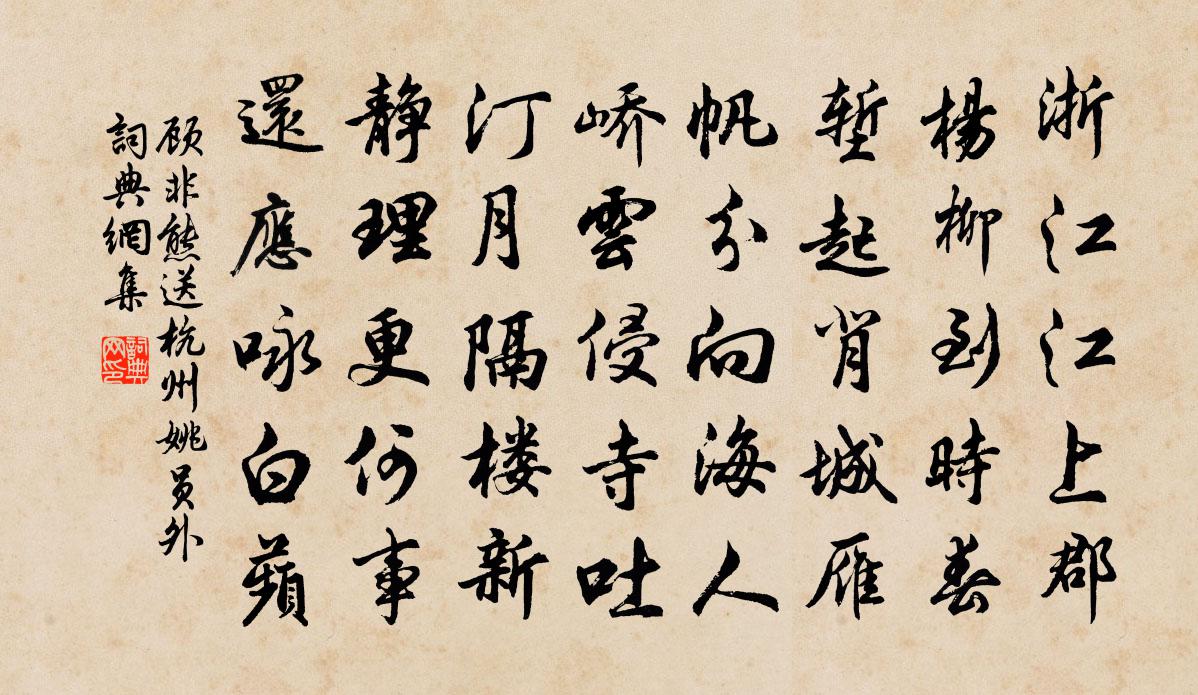 浙江江上郡
楊柳到時春
堑起肖城雁
帆分向海人
峤雲侵寺吐
汀月隔楼新
静理更何事
還應咏白蘋
顾非熊送杭州姚员外
詞典網集
詞典网印